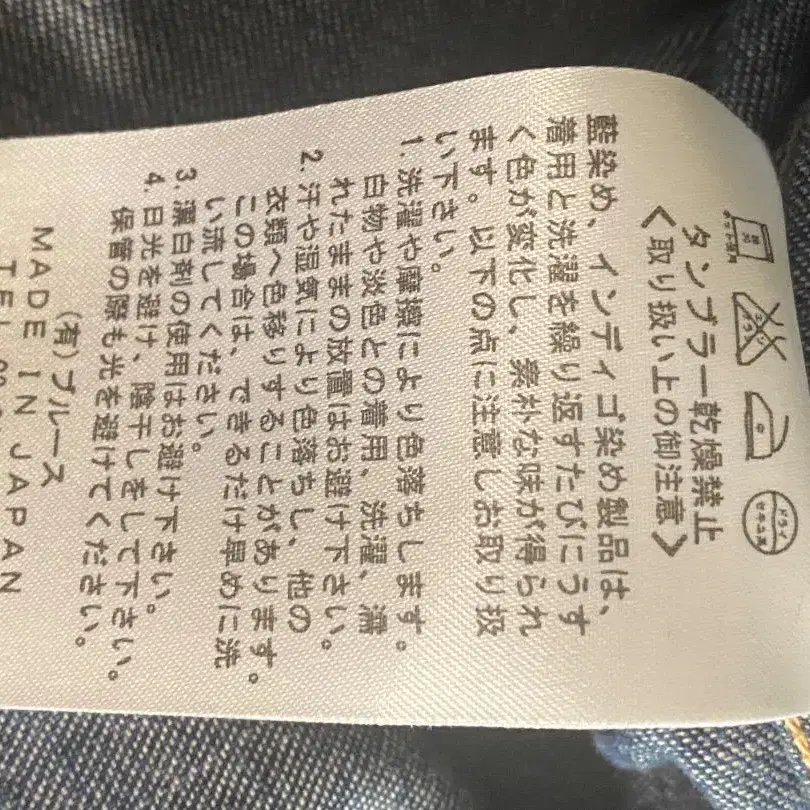 エンソ サラシ
ドライ
セキユ系
タンブラー乾燥禁止
<取り扱い上の御注意>
藍染め、インディゴ染め製品は、
着用と洗濯を繰り返すたびにうす
く色が変化し、素朴な味が得られ
ます。以下の点に注意しお取り扱
い下さい。
1. 洗濯や摩擦により色落ちします。
白物や淡色との着用、洗濯、濡
れたままの放置はお避け下さい。
2. 汗や湿気により色落ちし、他の
衣類へ色移りすることがあります。
この場合は、できるだけ早めに洗
い流してください。
3. 漂白剤の使用はお避け下さい。
4. 日光を避け、陰干しをして下さい。
保管の際も光を避けてください。
(有)ブルース
MADE IN JAPAN
TEL